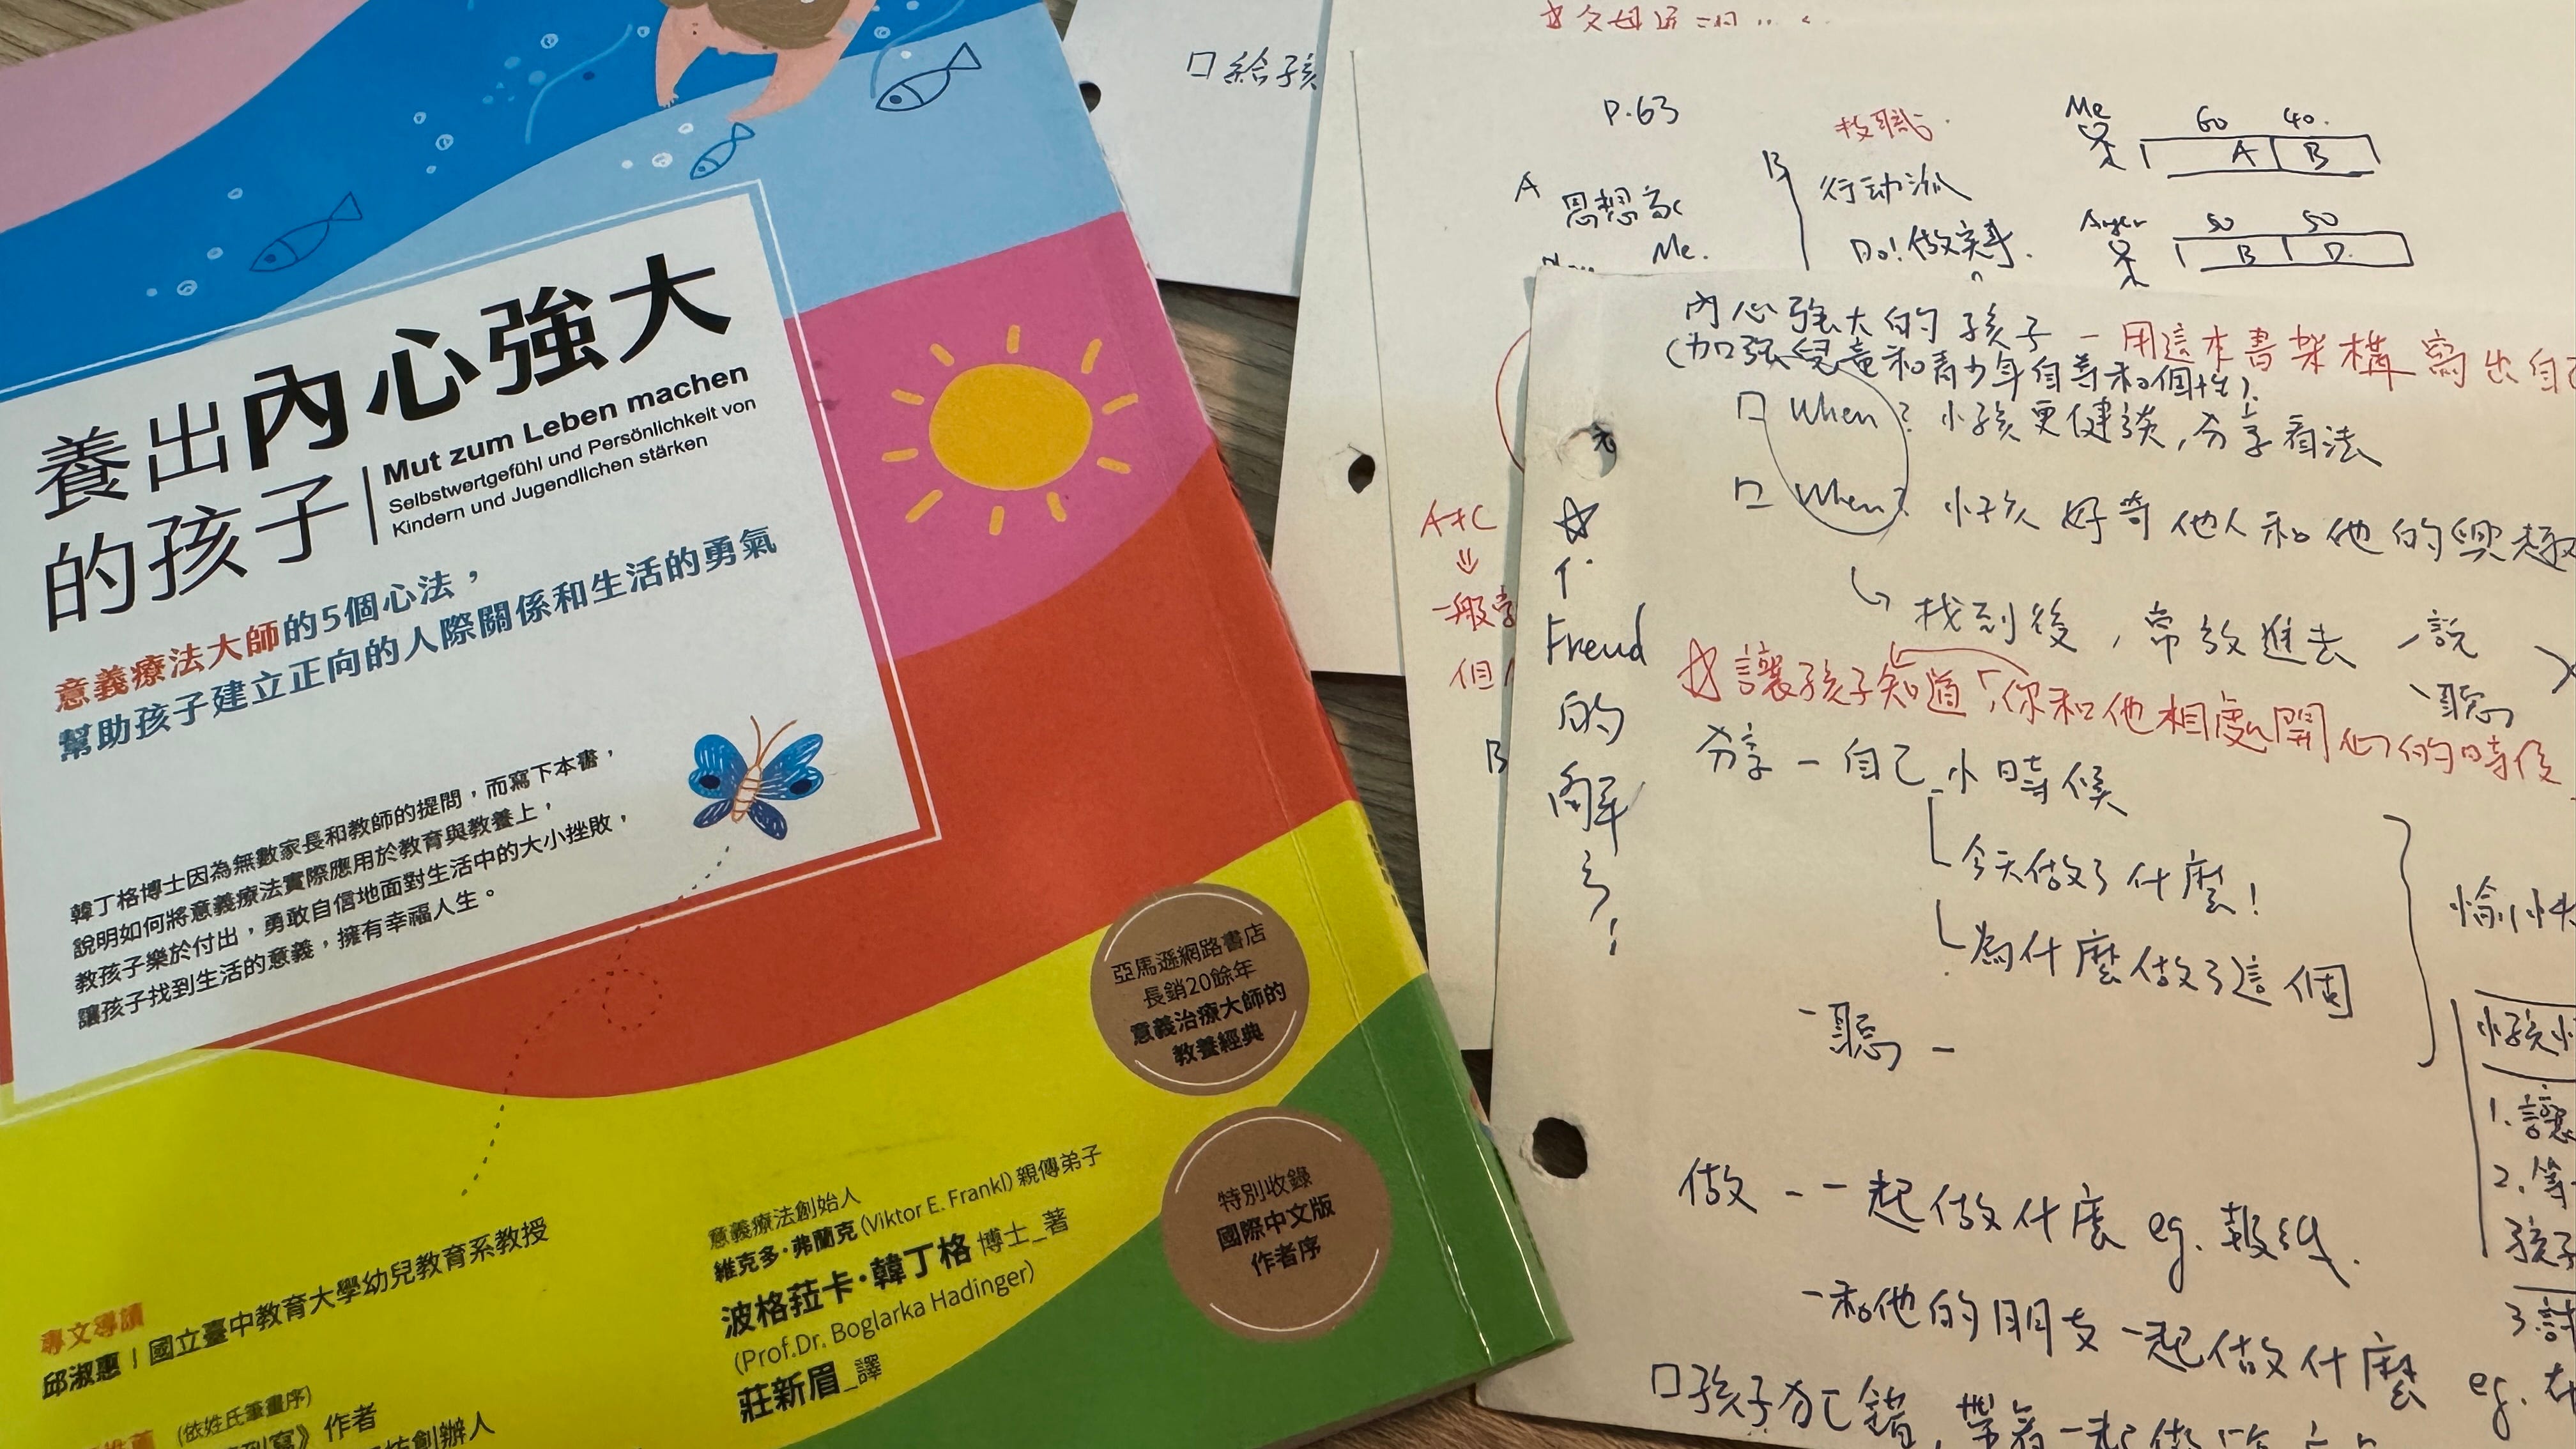 養出內心強大
的孩子
Mut zum Leben machen
Selbstwertgefühl und Persönlichkeit von
Kindern und Jugendlichen stärken
意義療法大師的5個心法，
幫助孩子建立正向的人際關係和生活的勇氣
韓丁格博士因為無數家長和教師的提問，而寫下本書，
說明如何將意義療法實際應用於教育與教養上，
教孩子樂於付出，勇敢自信地面對生活中的大小挫敗，
讓孩子找到生活的意義，擁有幸福人生。
亞馬遜網路書店
長銷20餘年
意義治療大師的
教養經典
特別收錄
國際中文版
作者序
意義療法創始人
維克多·弗蘭克(Viktor E. Frankl) 親傳弟子
波格菈卡·韓丁格 博士_著
(Prof.Dr. Boglarka Hadinger)
莊新眉_譯
專文導讀
邱淑惠｜國立臺中教育大學幼兒教育系教授
(依姓氏筆畫序)
作者
創辦人
口給孩
P.63
A 思想家
Me.
B 行动派
Do! 做実事.
Me
60 40.
A B
50 50
B D.
內心強大的孩子 - 用這本書架構寫出自己
(加強兒童和青少年自尊和個性).
口 When? 小孩更健談,分享看法
口 When? 小孩好奇他人和他的興趣
找到後，常放進去
-說
-聽
☆讓孩子知道「你和他相處開心的時候
分享 - 自己小時候
今天做了什麼!
為什麼做了這個
-聽 -
做 - 一起做什麼 eg.
-和他的朋友一起做什麼 eg.
口孩子犯錯,帶著一起做
☆
个
Freud
的
解
了
!
A+C
⇓
一般
但
B
愉快
小孩
1.讓
2.等
孩子
3.討